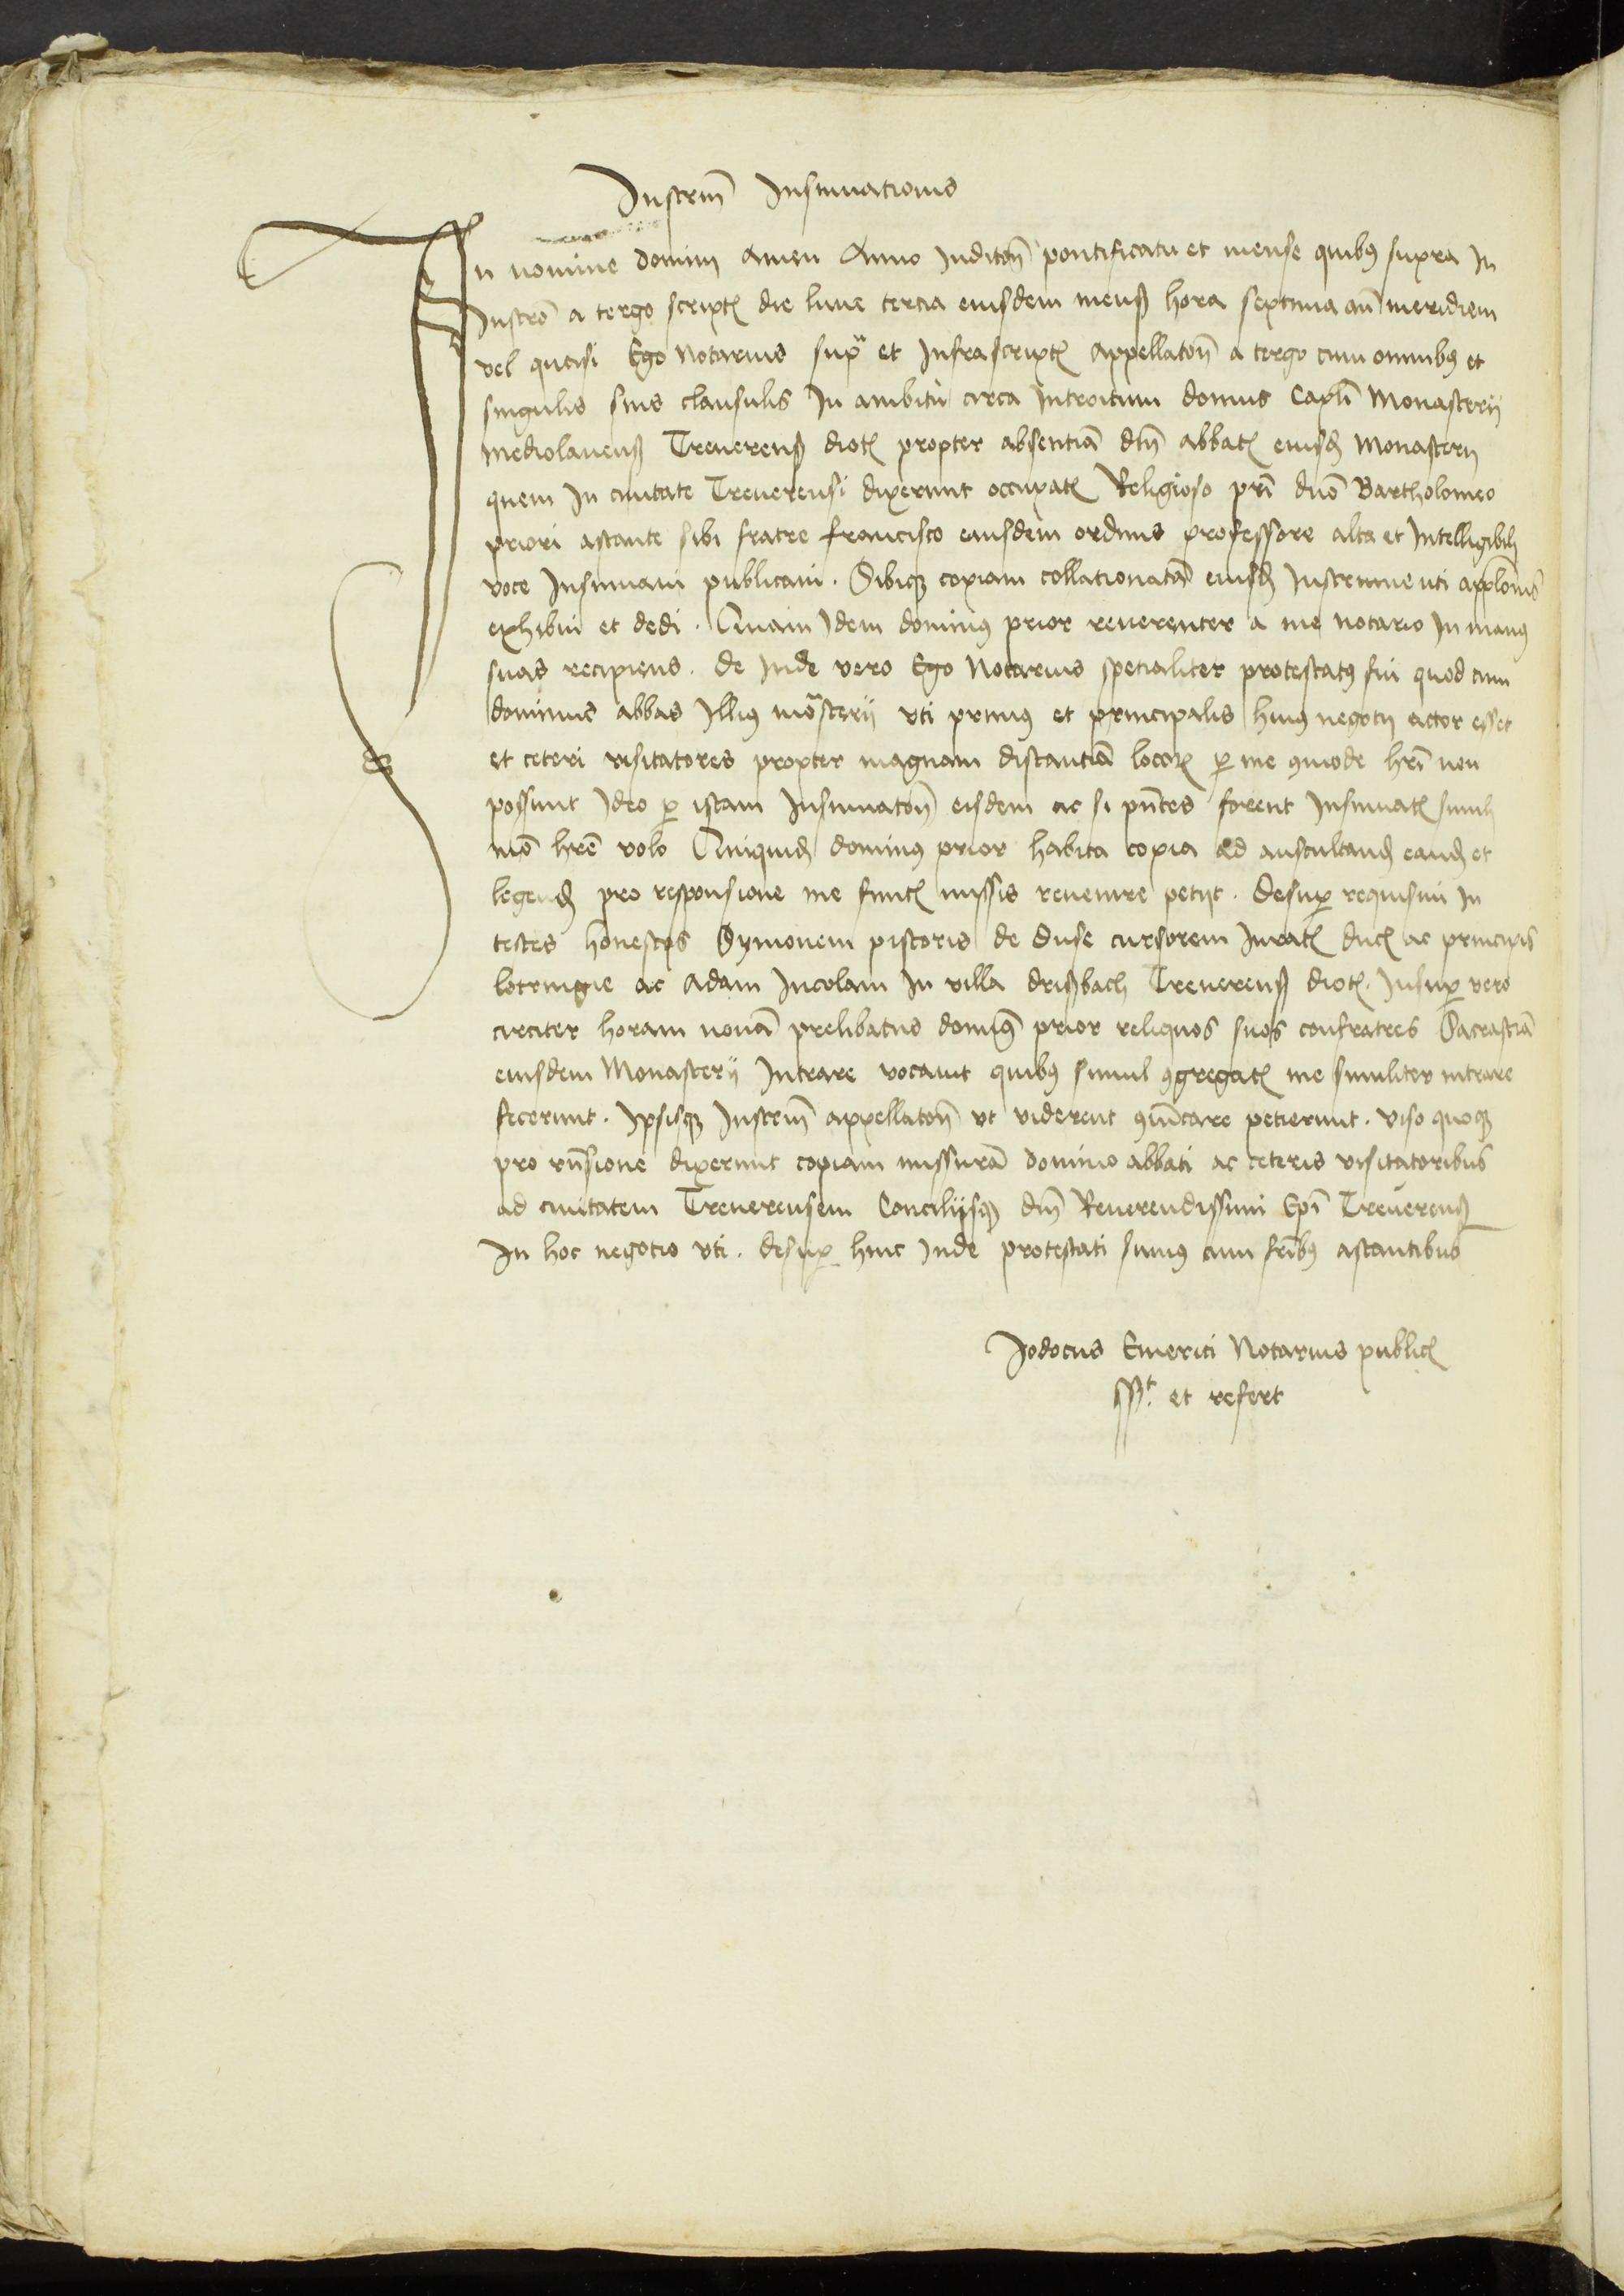 Instrm̄ Insinuationis
In nomine domini Amen Anno Inditoñ pontificatu et mense quibꝯ supra In
Instrō a tergo scriptꝭ die lune tercia eiusdem menß hora septima añ meridiem
vel quasi Ego Notarius supᵃ et Infrascriptꝭ Appellatoñ a tergo cum omnibꝯ et
singulis suis clausulis In ambitu circa Introitum domus Caplī Monasterij
mediolaneñß Treuereñß diotꝭ propter absentiā dñi abbatꝭ eiusđ Monasterij
quem In ciuitate Treuerensi dixerunt occupatꝭ Religioso prī dnō Bartholomeo
priori astante sibi fratre francisco eiusdem ordinis professore alta et Intelligibili
voce Insinuaui publicaui. Sibiqꝫ copiam collationatā eiusđ Instrumenti applōnis
exhibui et dedi. Quam Idem dominꝯ prior reuerenter a me notario In manꝯ
suas recipiens. de Inde vero Ego Notarius specialiter protestatꝯ fui quod cum
dominus abbas Illiꝯ mōsterij vti primꝯ et principalis huiꝯ negotij actor esset
et ceteri visitatores propter magnam distantiā locoꝝ ꝑ me ꝯmode hrī non
possunt Ideo ꝑ istam Insinuatoñ eisdem ac si pñtes forent Insinuatꝭ simili
mō hrē volo Quiquiđ dominꝯ prior habita copia ad auscultanđ eanđ et
legenđ pro responsione me functꝭ missis reuenire petijt. desuꝑ requisiui In
testes honestos Symonem pistoris de Duse cursorem Iuratꝭ ducꝭ ac principis
lotringie ac Adam Incolam In villa drißbach Treuereñß diotꝭ. Insuꝑ vero
circiter horam nonā prelibatus dominꝯ prior reliquos suos confratres Sacrastiā
eiusdem Monasterij Intrare vocauit quibꝯ simul ꝯgregatꝭ me similiter intrare
fecerunt. Ipsisqꝫ Instrm̄ appellatoñ vt viderent ꝯmūicare petierunt. viso quoqꝫ
pro rñsione dixerunt copiam missurā domino abbati ac ceteris visitatoribus
ad ciuitatem Treuerensem Consilijsqꝫ dñi Reuerendissimi Epī Treuereñß
In hoc negotio vti. desuꝑ hinc Inde protestati sumꝯ cum frībꝯ astantibus
Jodocus Emerici Notarius publicꝭ
sstᵗ. et refert